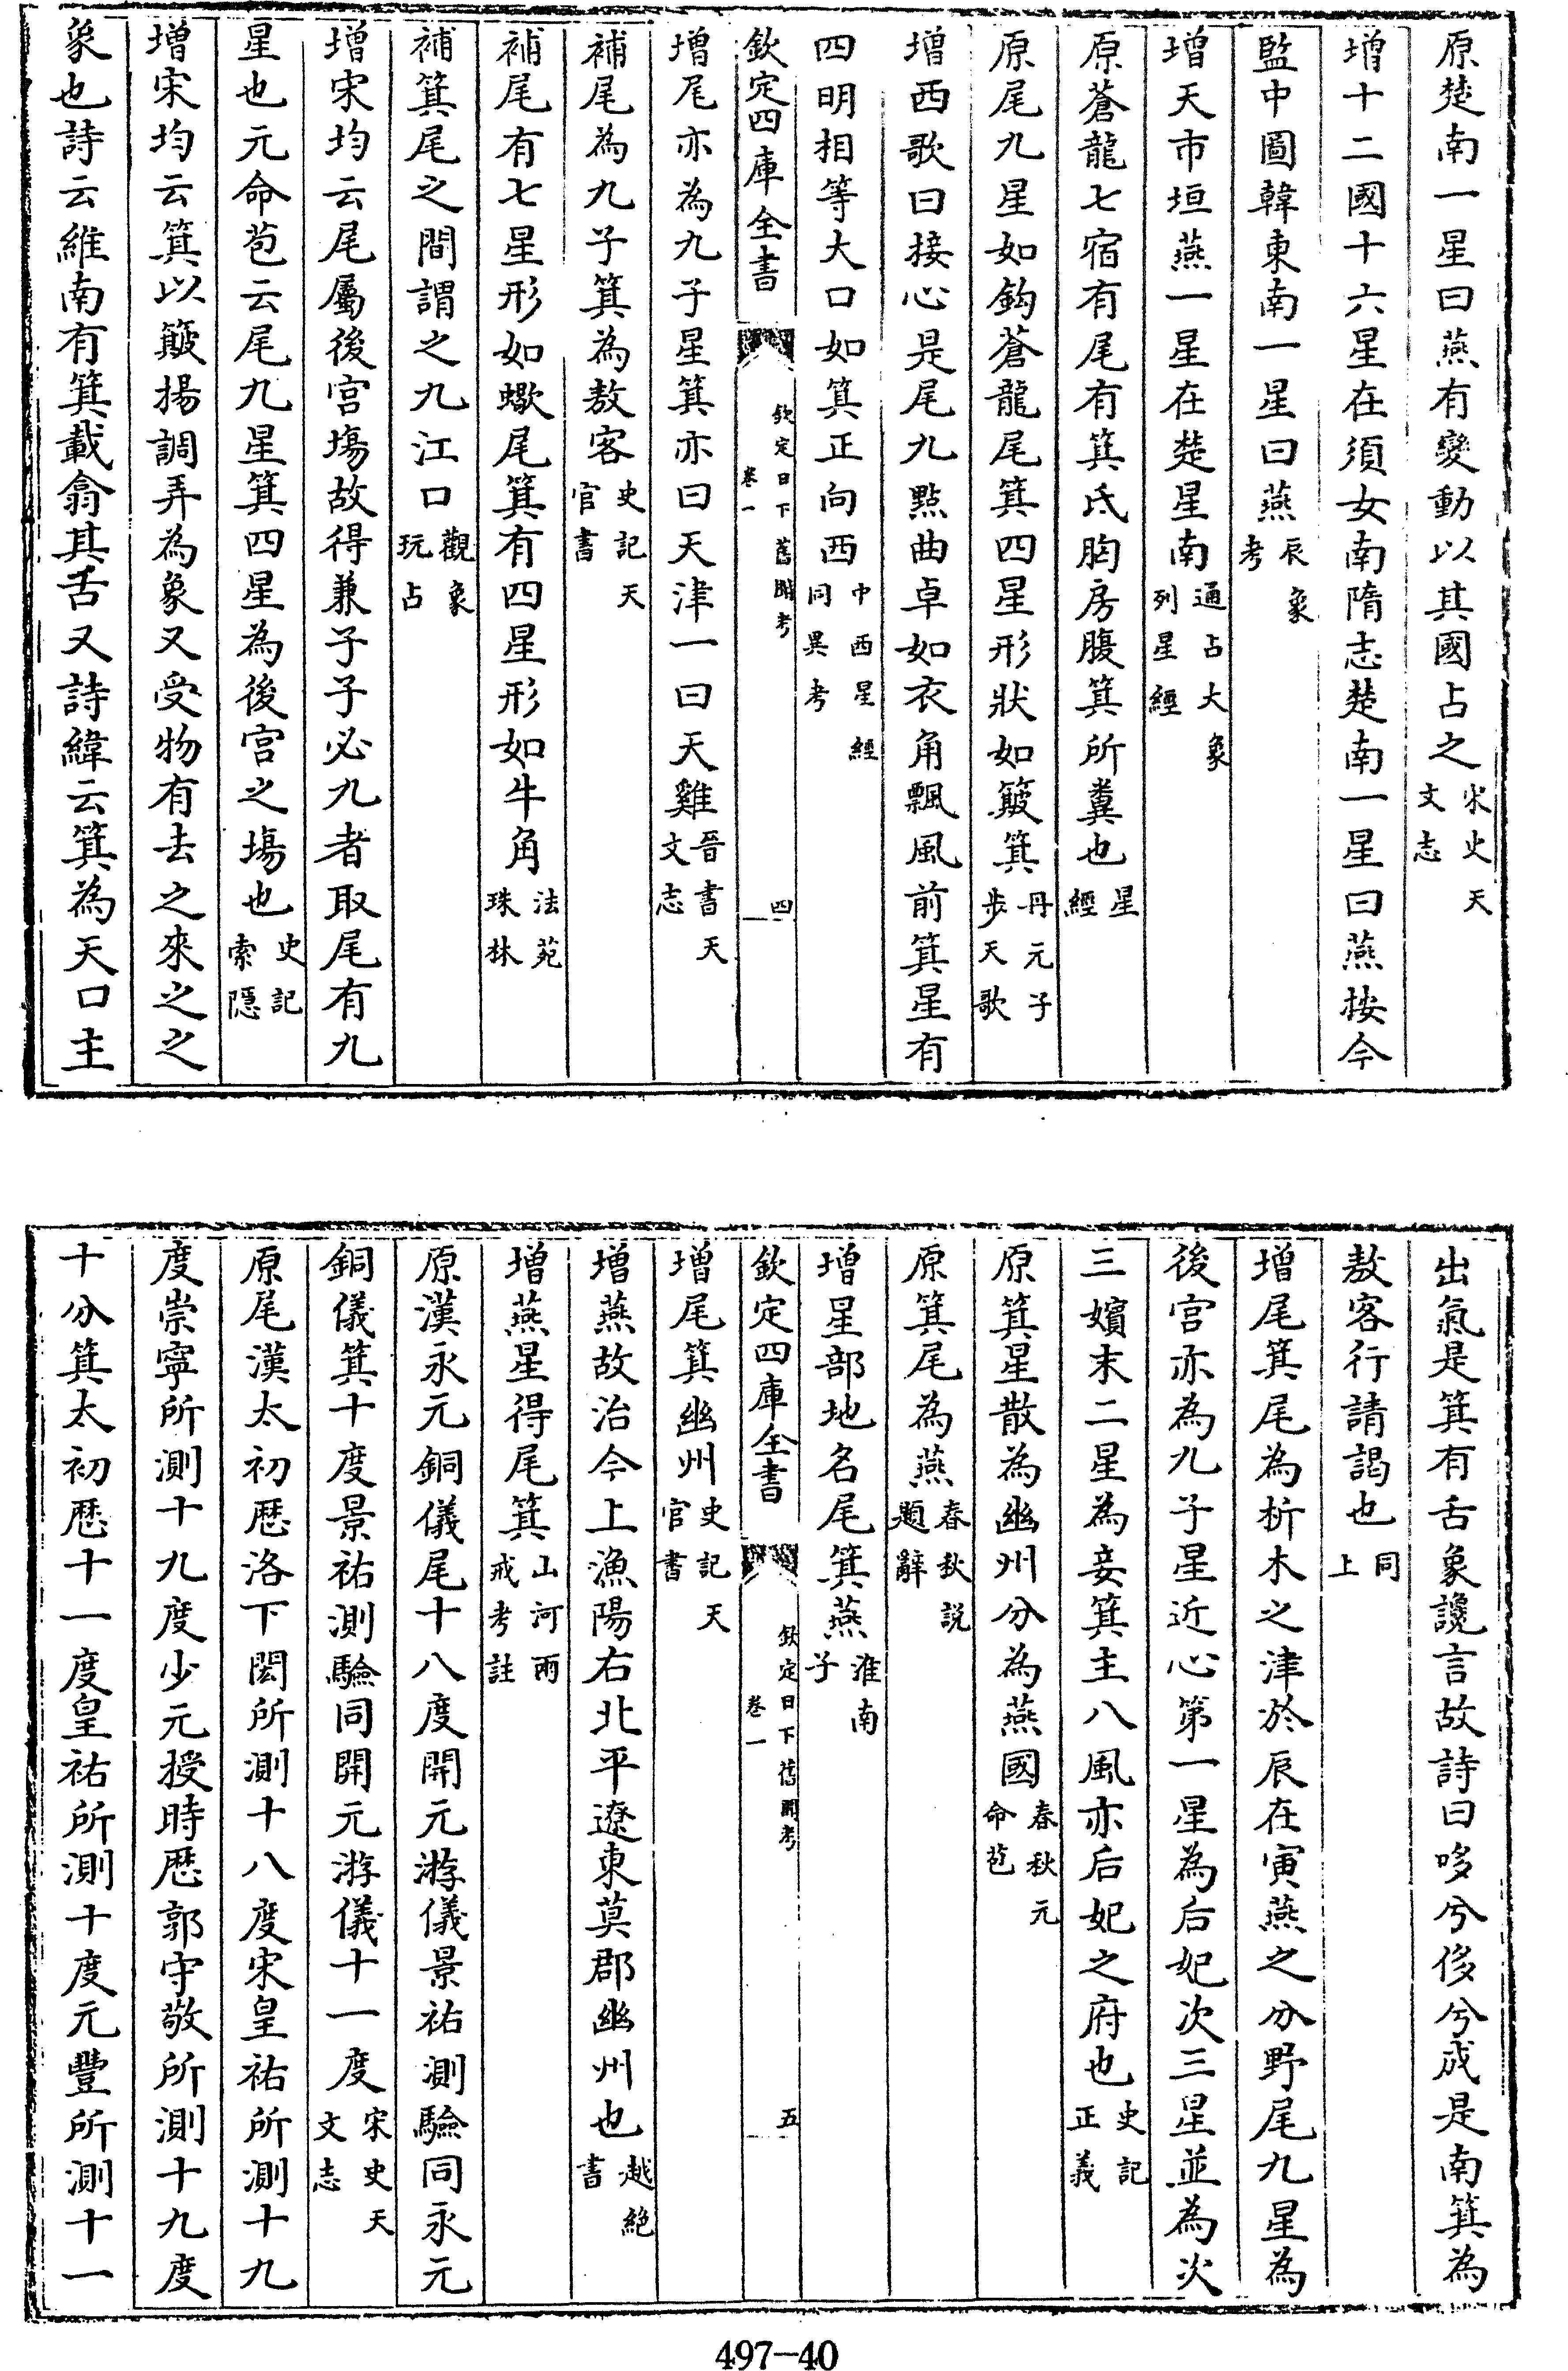 原楚南一星曰燕有變動以其國占之宋史天文志
增十二國十六星在須女南隋志楚南一星曰燕按今
監中圖韓東南一星曰燕辰象考
增天市垣燕一星在楚星南通占大象列星經
原蒼龍七宿有尾有箕氐胸房腹箕所糞也星經
原尾九星如鈎蒼龍尾箕四星形狀如簸箕丹元子步天歌
增西歌曰接心是尾九點曲卓如衣角飄風前箕星有
四明相等大口如箕正向西中西星經同異考
欽定四庫全書 欽定日下舊聞考 卷一 四
增尾亦為九子星箕亦曰天津一曰天雞晉書天文志
補尾為九子箕為敖客史記天官書
補尾有七星形如蠍尾箕有四星形如牛角法苑珠林
補箕尾之間謂之九江口觀象玩占
增宋均云尾屬後宮塲故得兼子子必九者取尾有九
星也元命苞云尾九星箕四星為後宮之塲也史記索隱
增宋均云箕以簸揚調弄為象又受物有去之來之之
象也詩云維南有箕載翕其舌又詩緯云箕為天口主
出氣是箕有舌象讒言故詩曰哆兮侈兮成是南箕為
敖客行請謁也同上
增尾箕尾為析木之津於辰在寅燕之分野尾九星為
後宮亦為九子星近心第一星為后妃次三星並為次
三嬪末二星為妾箕主八風亦后妃之府也史記正義
原箕星散為幽州分為燕國春秋元命苞
原箕尾為燕春秋説題辭
增星部地名尾箕燕淮南子
欽定四庫全書 欽定日下舊聞考 卷一 五
增尾箕幽州史記天官書
增燕故治今上漁陽右北平遼東莫郡幽州也越絶書
增燕星得尾箕山河兩戒考註
原漢永元銅儀尾十八度開元游儀景祐測驗同永元
銅儀箕十度景祐測驗同開元游儀十一度宋史天文志
原尾漢太初厯洛下閎所測十八度宋皇祐所測十九
度崇寧所測十九度少元授時厯郭守敬所測十九度
十分箕太初厯十一度皇祐所測十度元豐所測十一
497-40